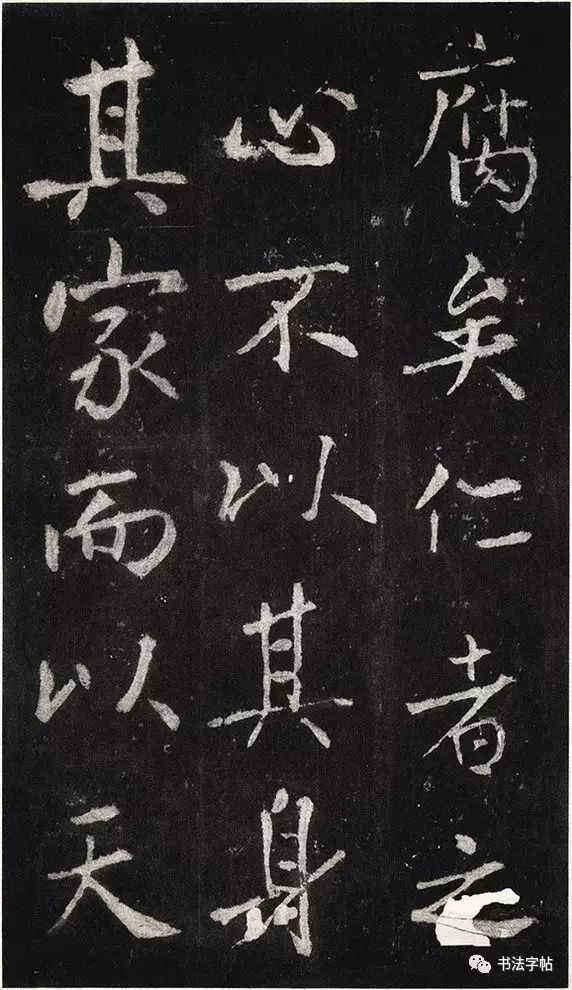 腐矣仁者之
心不以其身
其家而以天
书法字帖